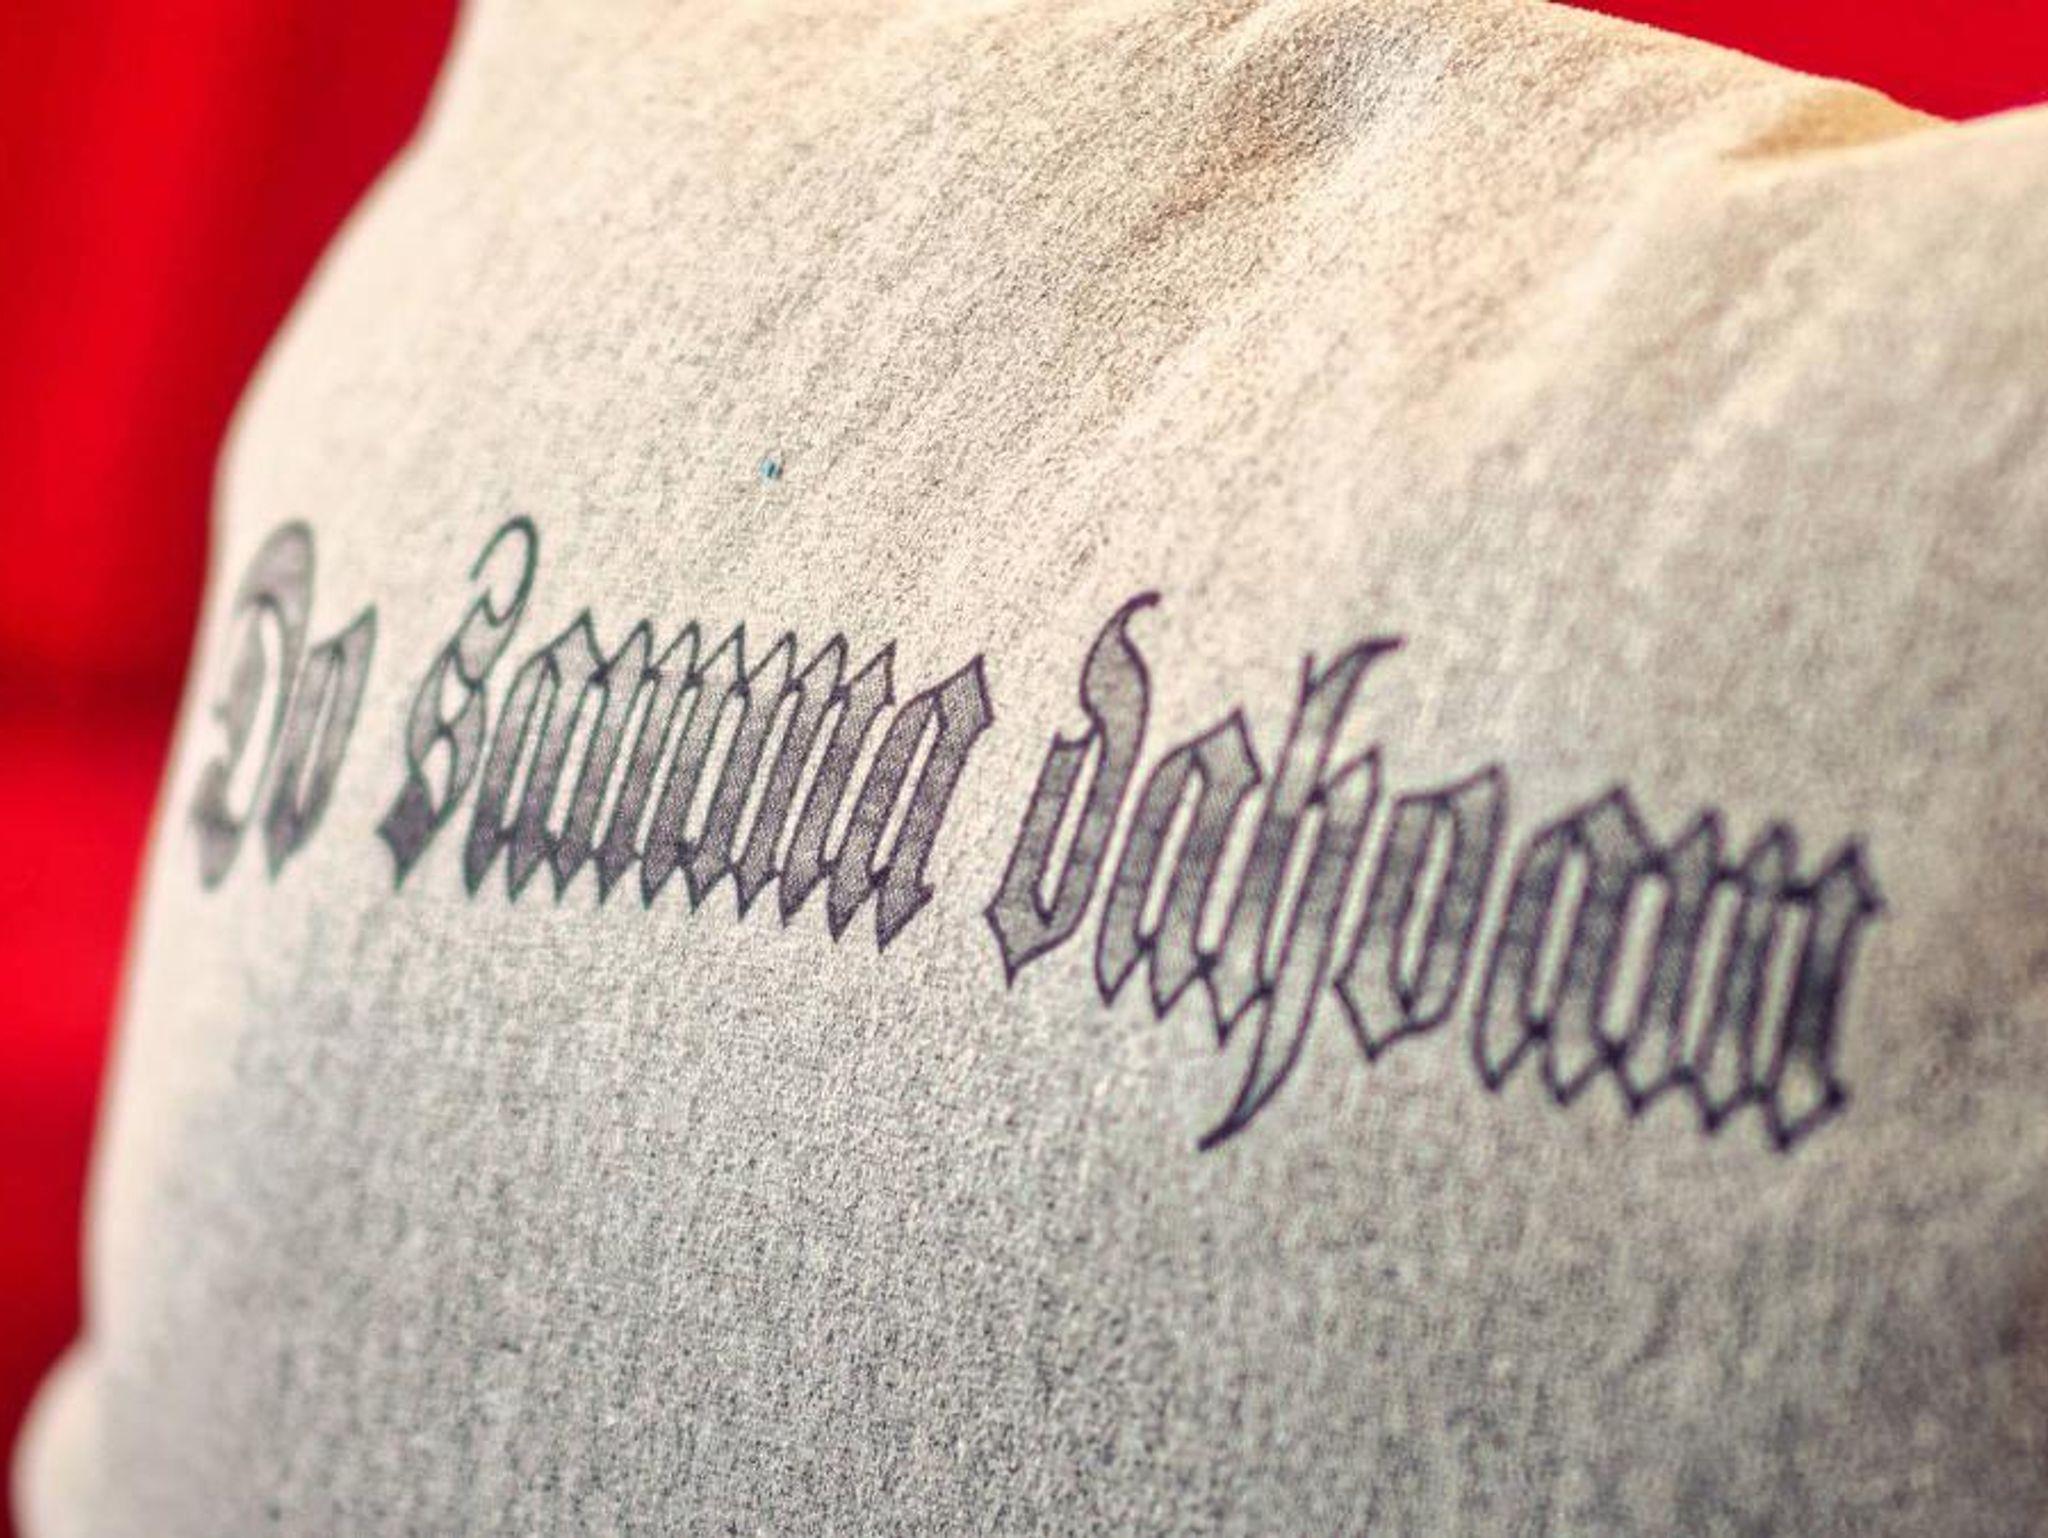 Do samma dahoam